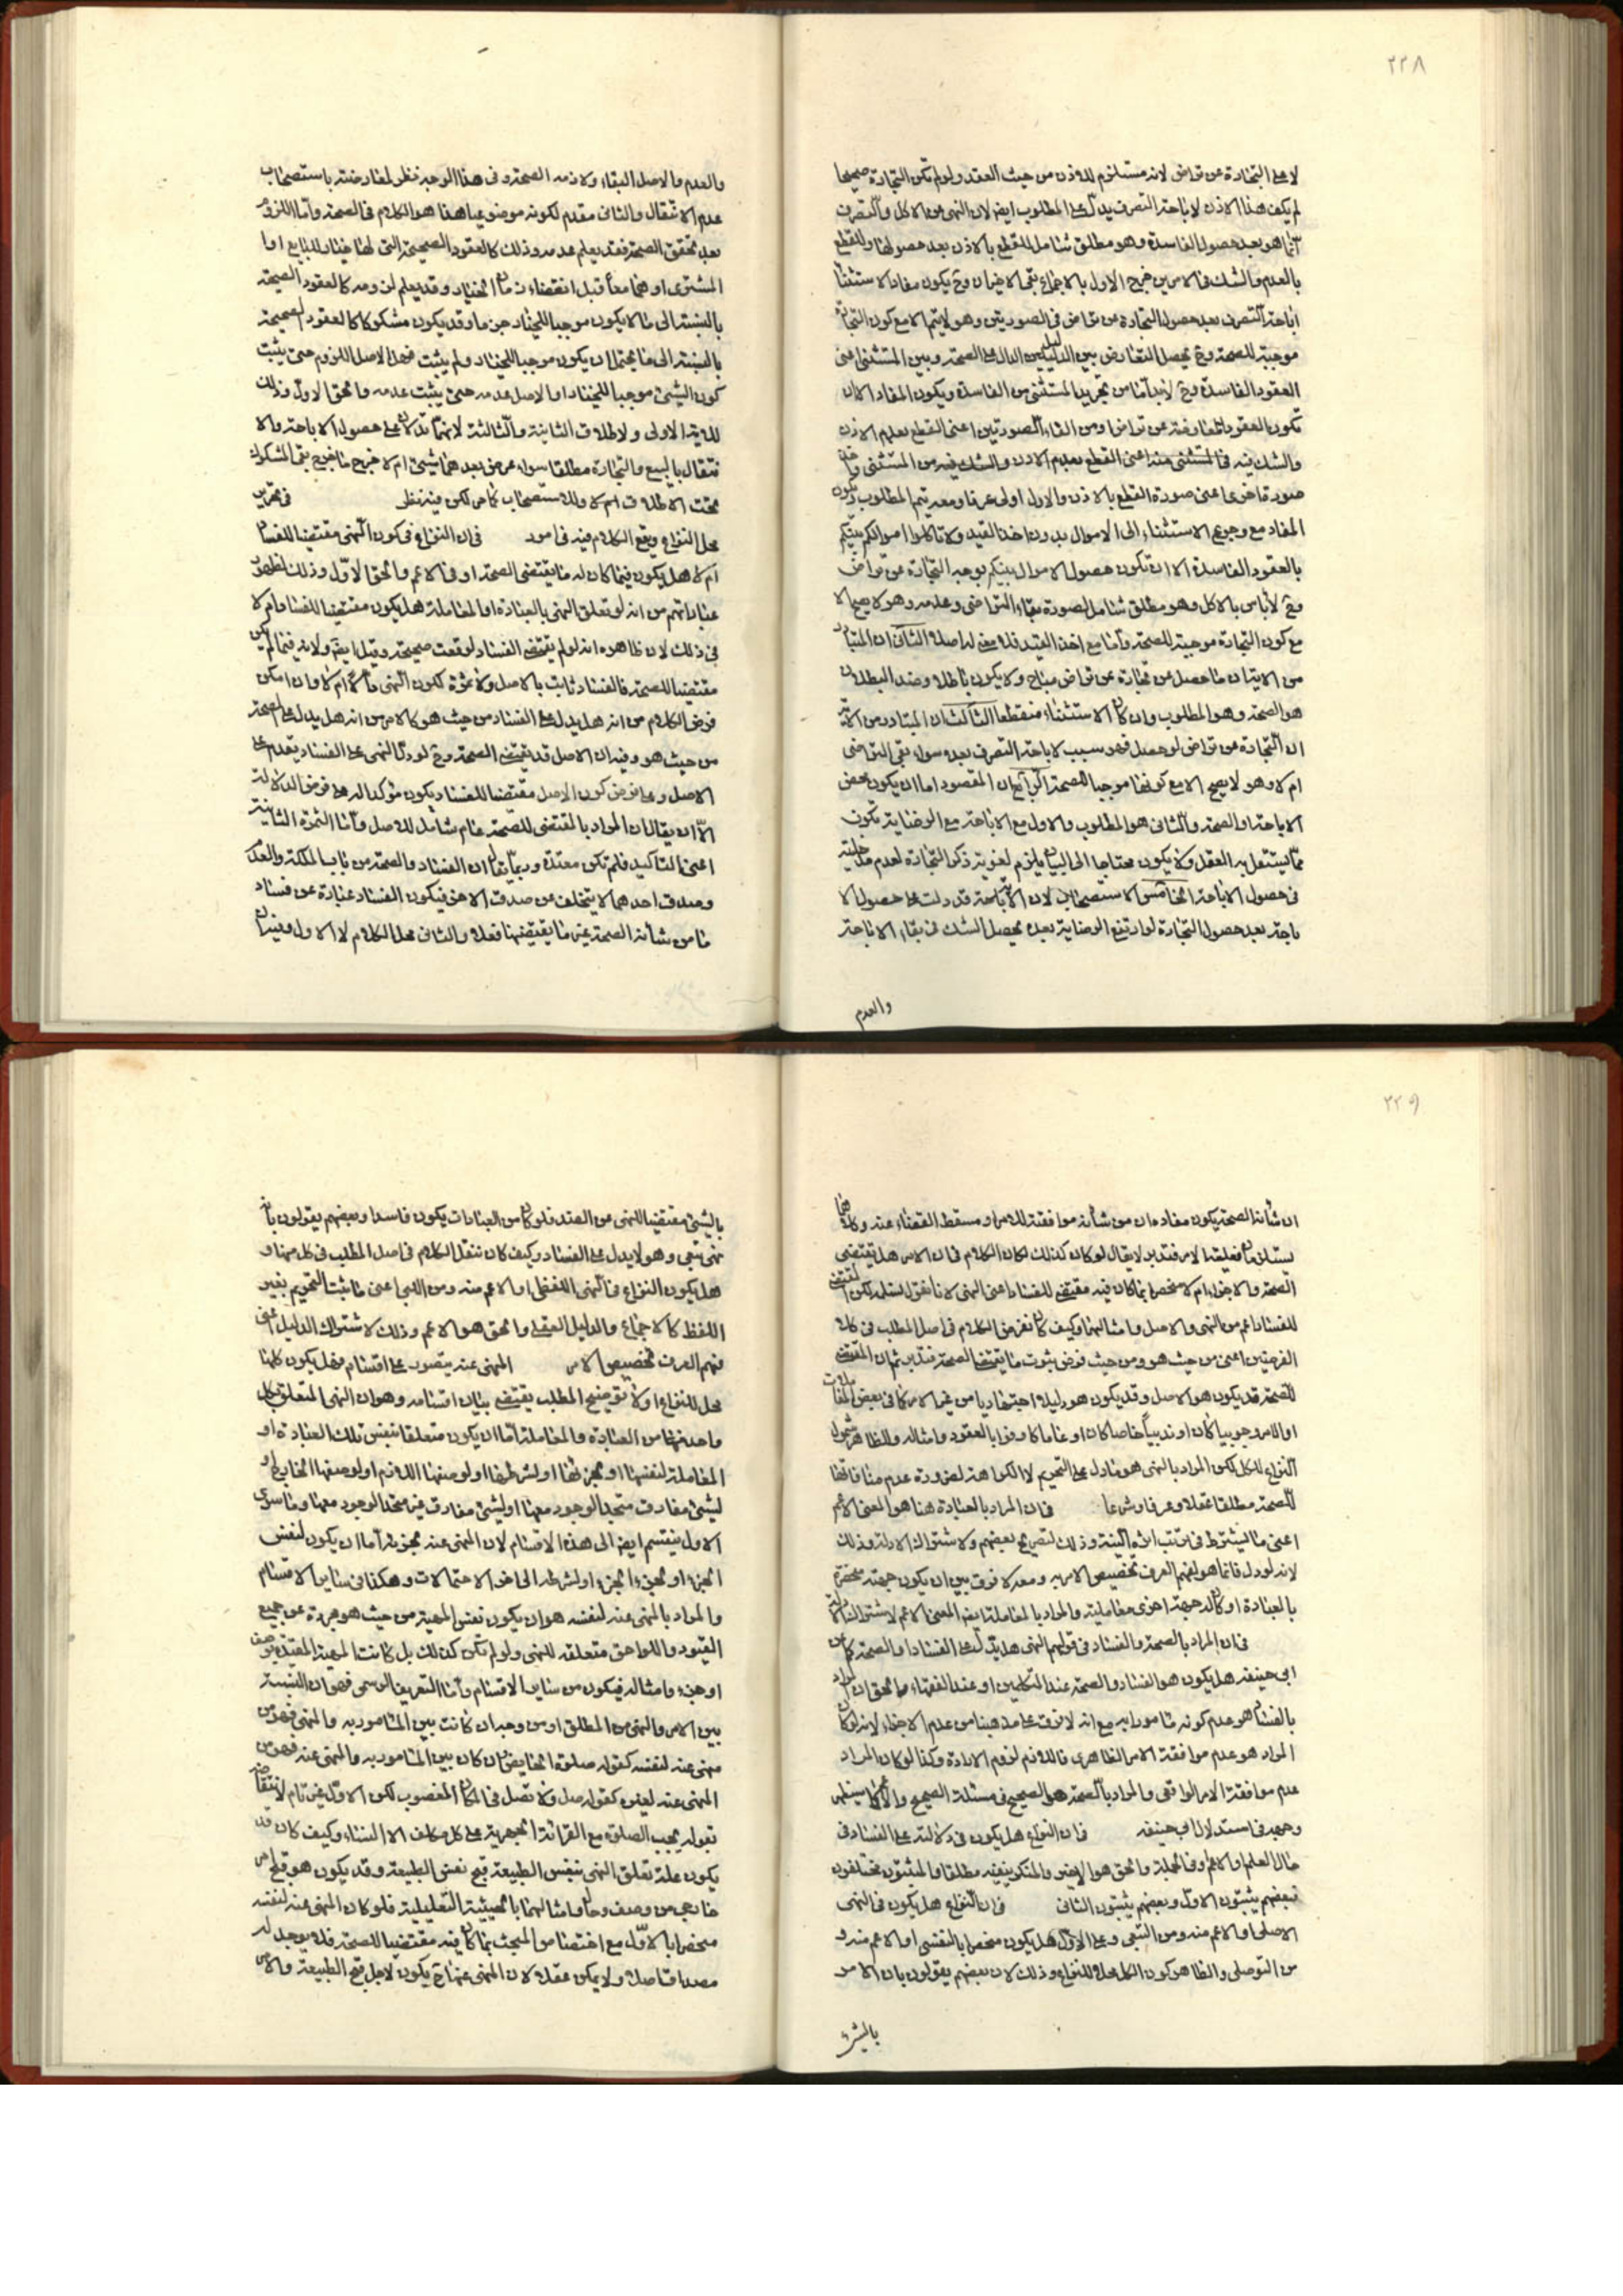 ٢٢٨
لا على التجارة عن تراض لانه مستلزم للاذن من حيث العقد ولو لم تكن التجارة صحيحا
لم يكف هذا الاذن لاباحة التصرف يدل على المطلوب ايضا لان النهى عن الاكل والتصرف
انما هو بعد حصول الفاسدة وهو مطلق شامل للقطع بالاذن بعد حصولها وللقطع
بالعدم والشك فالامرين خرج الاول بالاجماع بقى الاخيران وح يكون مفاد الاستثناء
اباحة التصرف بعد حصول التجارة عن تراض فى الصورتين وهو لا يتم الا مع كون التجارة
موجبة للصحة وح يحصل التعارض بين الدليلين الدال على الصحة وبين المستثنى اعنى
العقود الفاسدة وح لا بد اما من تجريد المستثنى من الفاسدة ويكون المفاد الا ان
تكون العقود عن تراض او من الغاء الصورتين اعنى القطع بعدم الاذن
والشك فيه فالمستثنى منه اعنى القطع بعدم الاذن والشك فيه من المستثنى
صورة اخرى اعنى صورة القطع بالاذن والاول اولى عرفا ومعه يتم المطلوب ويكون
المفاد مع رجوع الاستثناء الى الاموال بدون اخذ القيد ولا تاكلوا اموالكم بينكم
بالعقود الفاسدة الا ان تكون حصول الاموال بينكم بوجه التجارة عن تراض
وح لا باس بالاكل وهو مطلق شامل لصورة بقاء التراضى وعدمه وهو لا يصح الا
مع كون التجارة موجبة للصحة واما مع اخذ القيد فلا معنى له اصلا الثانى ان المتبادر
من الايتان ما حصل عن تجارة عن تراض مباح ولا يكون باطلا وضد البطلان
هو الصحة وهو المطلوب وان كان الاستثناء منقطعا الثالث ان المتبادر من الاية
ان التجارة عن تراض لو حصل فهو سبب لاباحة التصرف بعده سواء بقى التراضى
ام لا وهو لا يصح الا مع كونها موجبا للصحة الرابع ان المقصود اما ان يكون محض
الاباحة او الصحة والثانى هو المطلوب والاول مع الاباحة مع الرضاية تكون
مما يستقل به العقل ولا يكون محتاجا الى البيان يلزم لغوية ذكر التجارة لعدم مدخلية
فى حصول الاباحة الخامس الاستصحاب لان الاية قد دلت على حصول الا
باحة بعد حصول التجارة لو ارتفع الرضاية بعده يحصل الشك فى بقاء الاباحة
والعدم
والعدم والاصل البقاء ولازمه الصحة وفى هذا الوجه نظر لمعارضته باستصحاب
عدم الانتقال والثانى مقدم لكونه موضوعيا هذا هو الكلام فى الصحة واما اللزوم
بعد تحقق الصحة فقد يعلم عدمه وذلك كالعقود الصحيحة التى لها خيار للبايع او ا
المشترى او هما معا قبل انقضاء زمان الخيار وقد يعلم لزومه كالعقود الصحيحة
بالنسبة الى ما لا يكون موجبا للخيار جزما وقد يكون مشكوكا كالعقود الصحيحة
بالنسبة الى ما يحتمل ان يكون موجبا للخيار ولم يثبت فهل الاصل اللزوم حتى يثبت
كون الشيئ موجبا للخيار او الاصل عدمه حتى يثبت عدمه والحق الاول وذلك
للاية الاولى ولاطلاق الثانية والثالثة لانهما تدلان على حصول الاباحة والا
نتقال بالبيع والتجارة مطلقا سواء عرض بعدهما شيئ ام لا خرج ما خرج بقى المشكوك
تحت الاطلاق ام لا وللاستصحاب كما مر لكن فيه نظر فى تحرير
محل النزاع ويقع الكلام فيه فى امور فى ان النزاع فى كون النهى مقتضيا للفساد
ام لا هل يكون فيما كان له ما يقتضى الصحة او فى الاعم والحق الاول وذلك لظهور
عباراتهم من انه لو تعلق النهى بالعبادة او المعاملة هل يكون مقتضيا للفساد ام لا
فى ذلك لان ظاهره انه لو لم يقتضى الفساد لوقعت صحيحة وقيل ايضا ولانه فيما لم يكن
مقتضيا للصحة فالفساد ثابت بالاصل ولا ثمرة لكون النهى دالا ام لا وان امكن
فرض الكلام من انه هل يدل على الفساد من حيث هو كالامر من انه هل يدل على الصحة
من حيث هو وفيه ان الاصل قد يقتضى الصحة وح لو دل النهى على الفساد يقدم على
الاصل وعلى فرض كون الاصل مقتضيا للفساد يكون مؤكدا له على فرض الدلالة
الا ان يقال ان المراد بالمقتضى للصحة عام شامل للاصل واما الثمرة الثانية
اعنى التاكيد فلم تكن معتدة وربما يقال ان الفساد والصحة من باب الملكة والعدم
وصدق احدهما لا يتخلف عن صدق الاخر فيكون الفساد عبارة عن فساد
ما من شأنه الصحة غير ما يقتضيها فعلا والثانى محل الكلام لا الاول وفيه ان
٢٢٩
ان شأنه الصحة يكون مفاده ان من شأنه موافقته للامر او مسقط القضاء عنه وكلاهما
يستلزمان فعلية الامر فتدبر لا يقال لو كان كذلك لكان الكلام فى ان الامر هل يقتضى
الصحة والاجزاء ام لا منحصرا بما كان فيه مقتضى للفساد اعنى النهى لانا نقول نسلم لكن المقتضى
للفساد اعم من النهى والاصل وامثالهما وكيف كان نفرض الكلام فى اصل المطلب فى كلا
الفرضين اعنى من حيث هو ومن حيث فرض ثبوت ما يقتضى الصحة فتدبر ثم ان المقتضى
للصحة قد يكون هو الاصل وقد يكون هو دليلا اجتهاديا من غير الامر كما فى بعض المعاملات
او الامر وجوبيا كان او ندبيا خاصا كان او عاما كاوفوا بالعقود وامثاله والظاهر شمول
النزاع للكل لكن المراد بالنهى هو ما دل على التحريم لا الكراهة لضرورة عدم منافاتها
للصحة مطلقا عقلا وعرفا وشرعا فى ان المراد بالعبادة هنا هو المعنى الاعم
اعنى ما يشترط فى ترتب اثره النية وذلك لتصريح بعضهم ولاشتراك الادلة وذلك
لانه لو دل فانما هو لفهم العرف تخصيص الامر به ومعه لا فرق بين ان يكون جهته منحصرة
بالعبادة او كان له جهة اخرى معاملية والمراد بالمعاملة ايضا المعنى الاعم لاشتراك الادلة
فى ان المراد بالصحة والفساد فى قولهم النهى هل يدل على الفساد او الصحة كما عن
ابى حنيفه هل يكون هو الفساد والصحة عند المتكلمين او عند الفقهاء والحق ان المراد
بالفساد هو عدم كونه مامورا به مع انه لا فرق على مذهبنا من عدم الاجزاء لانه لو كان
المراد هو عدم موافقة الامر الظاهرى فاللازم لزوم الارادة وكذا لو كان المراد
عدم موافقة الامر الواقعى والمراد بالصحة هو الصحيح فى مسئلة الصحيح والاعم كما سيظهر
وجهه فى استدلال ابى حنيفه فى ان النزاع هل يكون فى دلالته على الفساد فى
حال العلم او الاعم او فى الجملة والحق هو الاخير والمنكر ينفيه مطلقا والمثبتون مختلفون
فبعضهم يثبتون الاول وبعضهم يثبتون الثانى فى ان النزاع هل يكون فى النهى
الاصلى او الاعم منه ومن التبعى وعلى الاول هل يكون منحصرا بالنفسى او الاعم منه و
من التوصلى والظاهر كون الكل محل النزاع وذلك لان بعضهم يقولون بان الامر
بالشئ
بالشيئ مقتضيا للنهى عن الضد فلو كان من العبادات يكون فاسدا وبعضهم يقولون بانه
نهى تبعى وهو لا يدل على الفساد وكيف كان ننقل الكلام فى اصل المطلب فى كل منها و
هل يكون النزاع فى النهى اللفظى او الاعم منه ومن اللبى اعنى ما يثبت التحريم بغير
اللفظ كالاجماع والدليل العقلى والحق هو الاعم وذلك لاشتراك الدليل اعنى
فهم العرف تخصيص الامر المنهى عنه يتصور على اقسام فهل يكون كلها
محل للنزاع او لا توضيح المطلب يقتضى بيان اقسامه وهو ان النهى المتعلق بكل
واحد منهما من العبادة والمعاملة اما ان يكون متعلقا بنفس تلك العبادة او
المعاملة لنفسها او لجزئها او لشرطها او لوصفها اللازم او لوصفها الخارج او
لشيئ مفارق متحد الوجود معها او لشيئ مفارق غير متحد الوجود معها وما سوى
الاول ينقسم ايضا الى هذه الاقسام لان المنهى عنه لجزئه اما ان يكون لنفس
الجزء او لجزء الجزء او لشرطه الى اخر الاحتمالات وهكذا فى ساير الاقسام
والمراد بالمنهى عنه لنفسه هو ان يكون نفس المهية من حيث هو مجردة عن جميع
القيود واللواحق متعلقه للنهى ولو لم تكن كذلك بل كانت المهية المقيدة بوصف
او جزء وامثاله فيكون من ساير الاقسام واما التعريف الرسمى فهو ان النسبة
بين الامر والنهى من المطلق او من وجه ان كانت بين المامور به والمنهى فهو من
منهى عنه لنفسه كقوله صلوة الحايض وان كان بين المامور به والمنهى عنه فهو من
المنهى عنه لغيره كقوله صل ولا تصل فى المكان المغصوب لكن الاول غير تام لانتقاضه
بقوله يجب الصلوة مع القرائة الجهرية على كل مكلف الا النساء وكيف كان قد
يكون علة تعلق النهى بنفس الطبيعة قبح نفس الطبيعة وقد يكون هو قبح امر
خارجى من وصف وحال وامثالهما بالحيثية التعليلية فلو كان المنهى عنه لنفسه
منحصرا بالاول مع اختصاص المبحث بما كان فيه مقتضيا للصحة فلا يوجد له
مصداق اصلا ولا يمكن عقلا لان المنهى عنه ح يكون لاجل قبح الطبيعة والامر